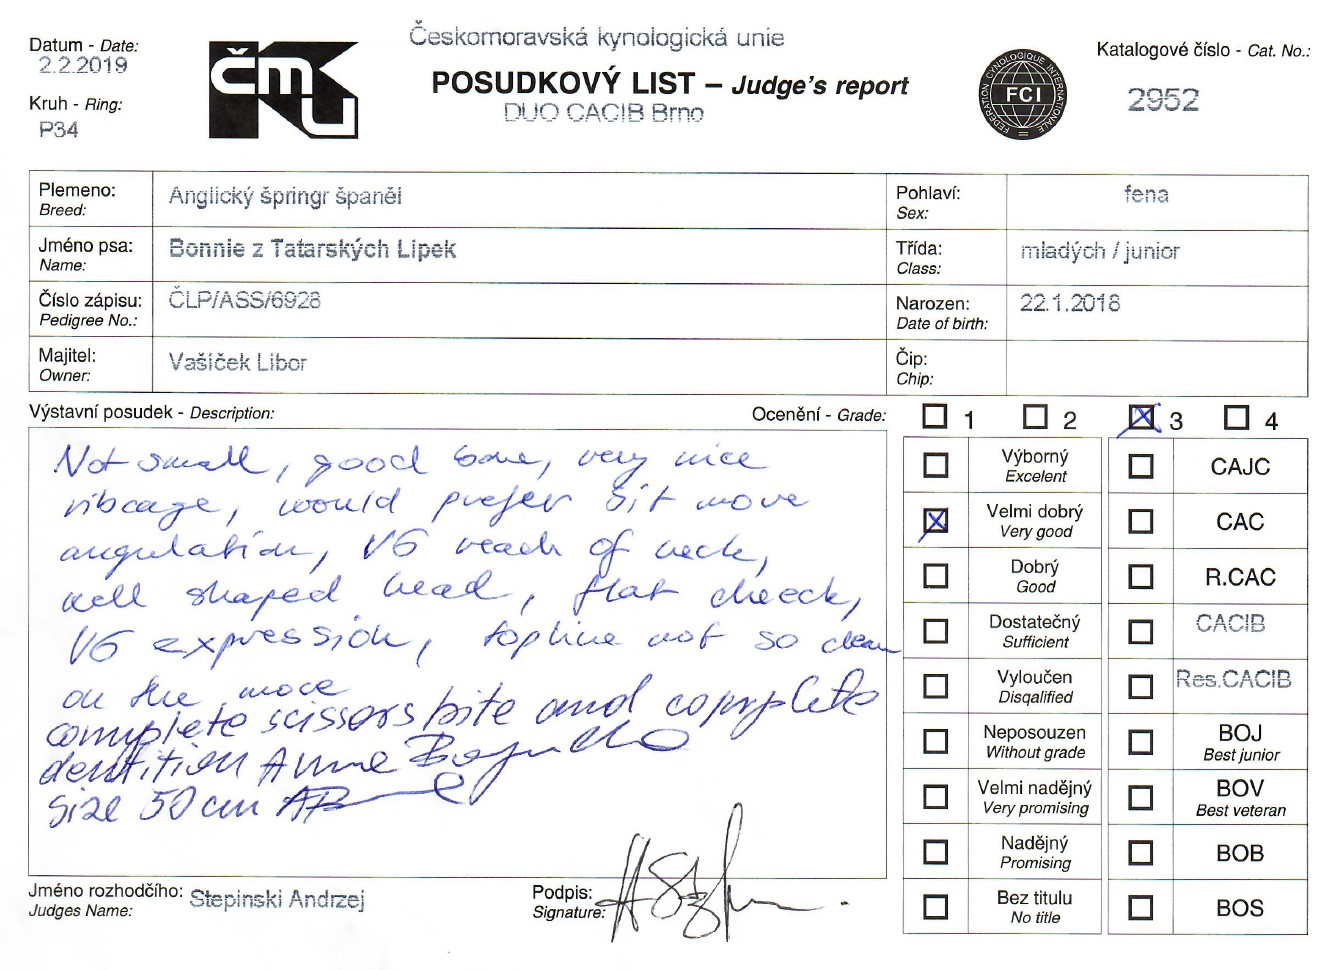 Datum - Date:
2.2.2019
Kruh - Ring:
P34
ČMKU
Českomoravská kynologická unie
POSUDKOVÝ LIST – Judge's report
DUO CACIB Brno
FEDERATION CYNOLOGIQUE INTERNATIONALE
FCI
Katalogové číslo - Cat. No.:
2952
Plemeno: Anglický špringr španěl
Breed:
Pohlaví: fena
Sex:
Jméno psa: Bonnie z Tatarských Lipek
Name:
Třída: mladých / junior
Class:
Číslo zápisu: ČLP/ASS/6928
Pedigree No.:
Narozen: 22.1.2018
Date of birth:
Majitel: Vašíček Libor
Owner:
Čip:
Chip:
Výstavní posudek - Description:
Ocenění - Grade:
1 2 3 4
Not small, good bone, very nice
ribcage, would prefer bit more
angulation, VG reach of neck,
well shaped head, flat cheek,
VG expression, topline not so clean
on the move
complete scissors bite and complete
dentition Anne
size 50 cm
Výborný
Excelent
Velmi dobrý
Very good
Dobrý
Good
Dostatečný
Sufficient
Vyloučen
Disqalified
Neposouzen
Without grade
Velmi nadějný
Very promising
Nadějný
Promising
Bez titulu
No title
CAJC
CAC
R.CAC
CACIB
Res.CACIB
BOJ
Best junior
BOV
Best veteran
BOB
BOS
Jméno rozhodčího: Stepinski Andrzej
Judges Name:
Podpis:
Signature: